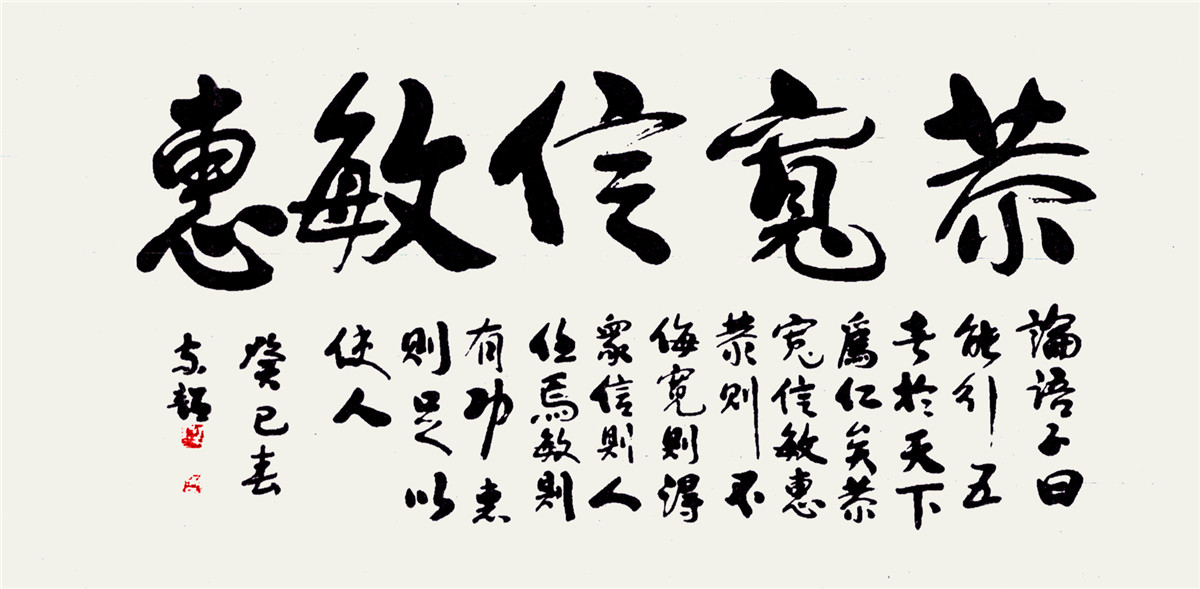 恭寬信敏惠
論語子曰
能行五
者於天下
爲仁矣恭
寬信敏惠
恭則不
侮寬則得
眾信則人
任焉敏則
有功惠
則足以
使人
癸巳春